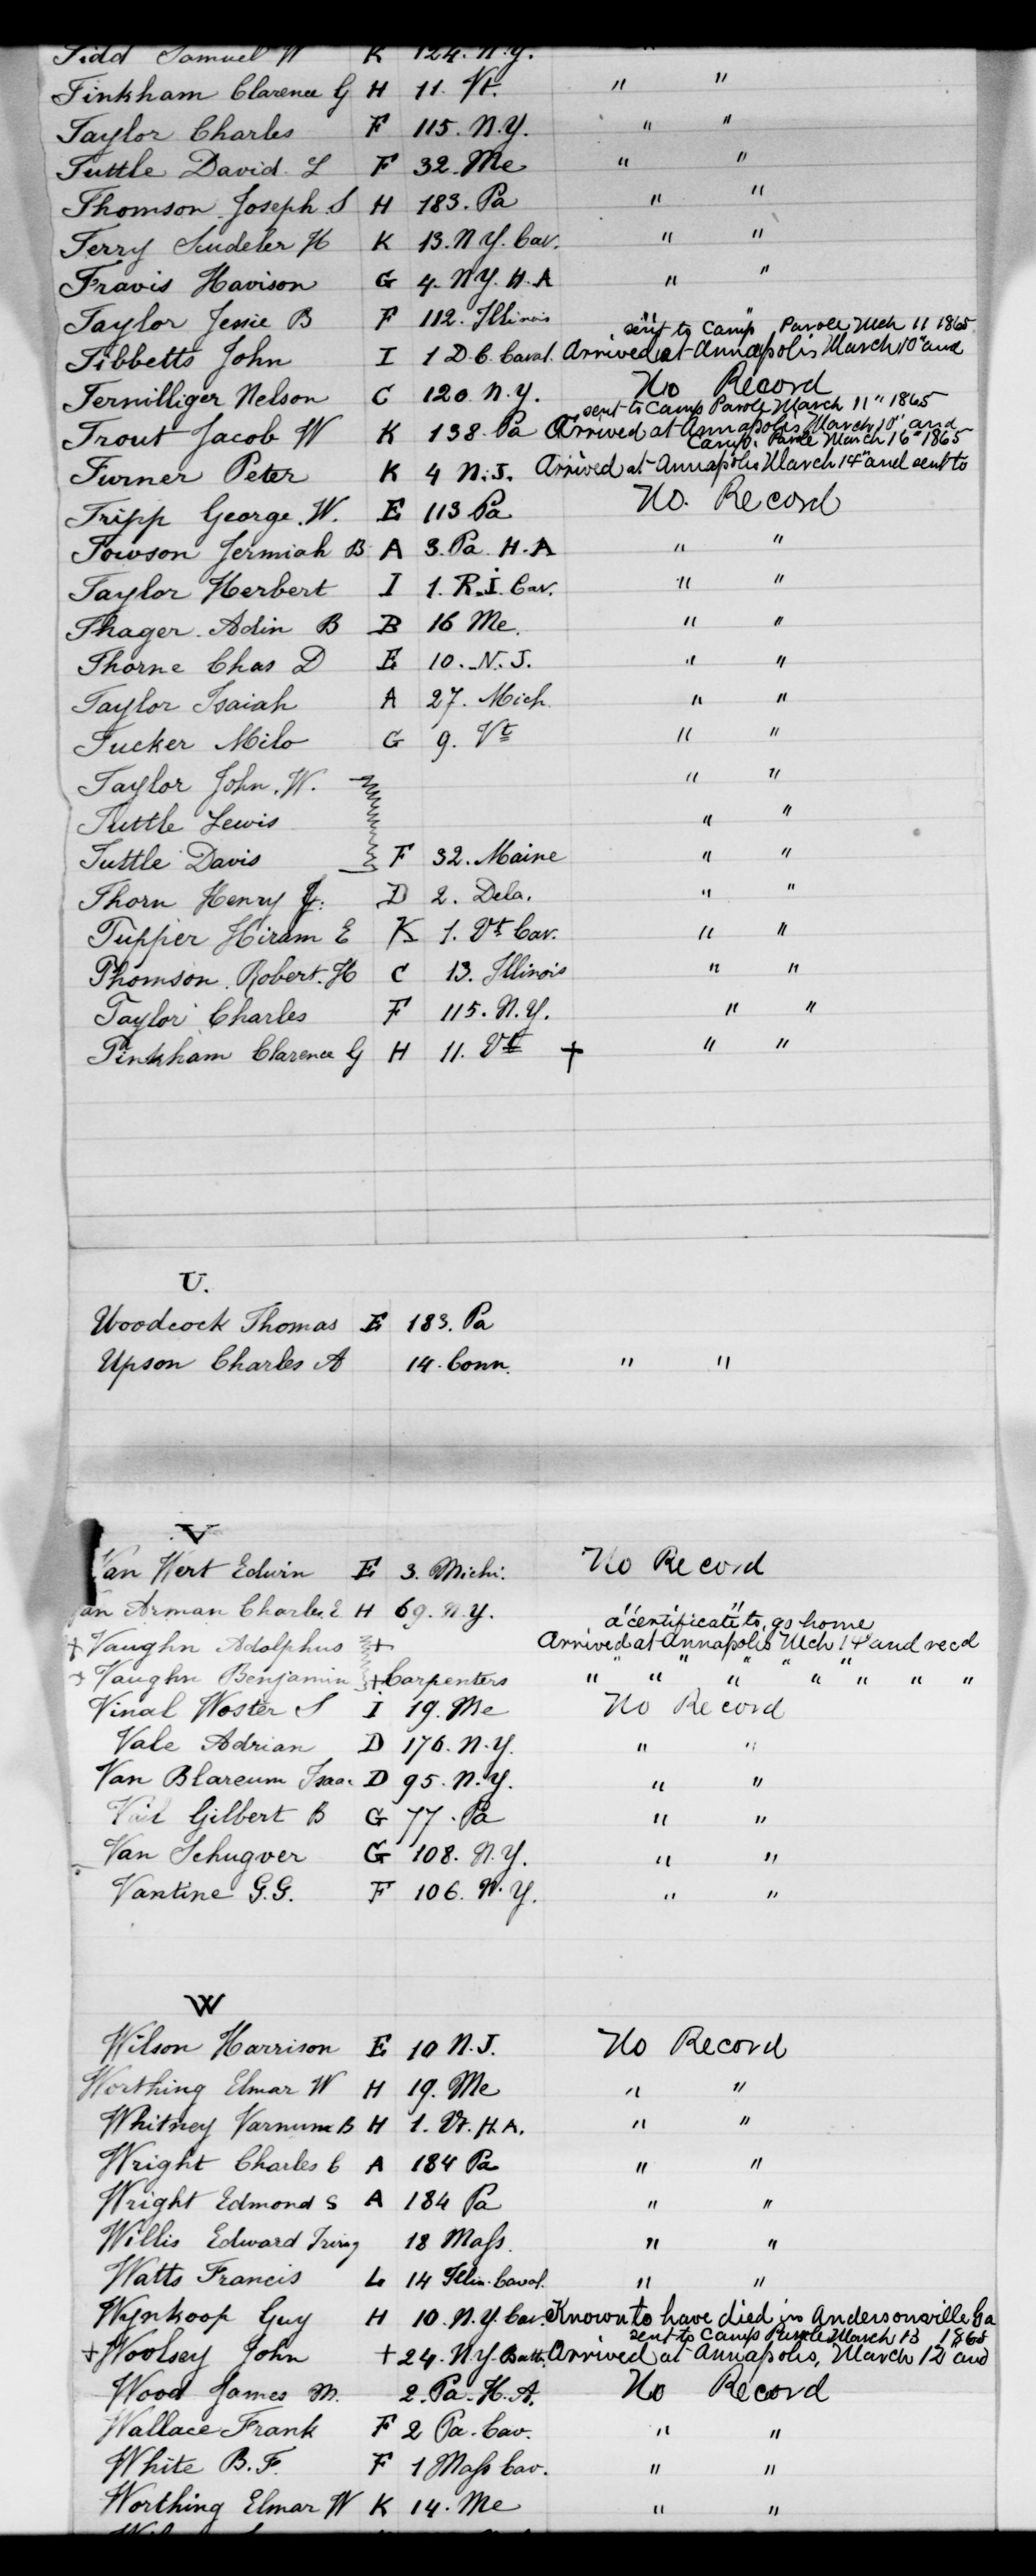 Tidd Samuel W K 124. N.Y. "
Tinkham Clarence G H 11. Vt. " "
Taylor Charles F 115. N.Y. " "
Tuttle David L F 32. Me " "
Thomson Joseph S H 183. Pa " "
Terry Sudeler H K 13. N.Y. Cav. " "
Travis Havison G 4. N.Y. H.A " "
Taylor Jessie B F 112. Illinois " "
sent to Camp Parole Mch 11 1865
Tibbetts John I 1 D.C. Caval. Arrived at Annapolis March 10" and
Terwilliger Nelson C 120 N.Y. No Record
sent to Camp Parole March 11" 1865
Trout Jacob W K 138. Pa Arrived at Annapolis March 10" and
Camp. Parole March 16" 1865
Turner Peter K 4 N.J. Arrived at Annapolis March 14" and sent to
Tripp George. W. E 113 Pa No. Record
Towson Jermiah B A 3. Pa. H.A " "
Taylor Herbert I 1. R.I. Cav. " "
Thager Adin B B 16 Me. " "
Thorne Chas D E 10. N.J. " "
Taylor Isaiah A 27. Mich. " "
Tucker Milo G 9. Vt " "
Taylor John. W. " "
Tuttle Lewis " "
Tuttle Davis F 32. Maine " "
Thorn Henry D 2. Dela. " "
Tupper Hiram E K 1. Vt Cav. " "
Thomson Robert. H C 13. Illinois " "
Taylor Charles F 115. N.Y. " "
Tinkham Clarence G H 11. Vt + " "
U.
Woodcock Thomas E 183. Pa
Upson Charles A 14. Conn. " "
V
Van Wert Edwin E 3. Michi. No Record
an Arman Charles E H 69. N.Y. " "
a certificate to go home
+ Vaughn Adolphus + Arrived at Annapolis Mch 14" and recd
+ Vaughn Benjamin + Carpenters " " " " " " " " "
Vinal Woster S I 19. Me No Record
Vale Adrian D 176. N.Y. " "
Van Blarcum Isaac D 95. N.Y. " "
Vail Gilbert B G 77. Pa " "
Van Schugver G 108. N.Y. " "
Vantine G.G. F 106. N.Y. " "
W
Wilson Harrison E 10 N.J. No Record
Worthing Elmar W H 19. Me " "
Whitney Varnum B H 1. Vt. H.A. " "
Wright Charles C A 184 Pa " "
Wright Edmond S A 184 Pa " "
Willis Edward Irving 18 Mass. " "
Watts Francis L 14 Illin. Caval. " "
Wynkoop Guy H 10. N.Y. Cav. Known to have died in Andersonville Ga
sent to Camp Parole March 13 1865
+ Woolsey John + 24. N.Y. Batt. Arrived at Annapolis, March 12" and
Wood James M. 2. Pa. H.A. No Record
Wallace Frank F 2 Pa. Cav. " "
White B.F. F 1 Mass Cav. " "
Worthing Elmar W K 14. Me " "